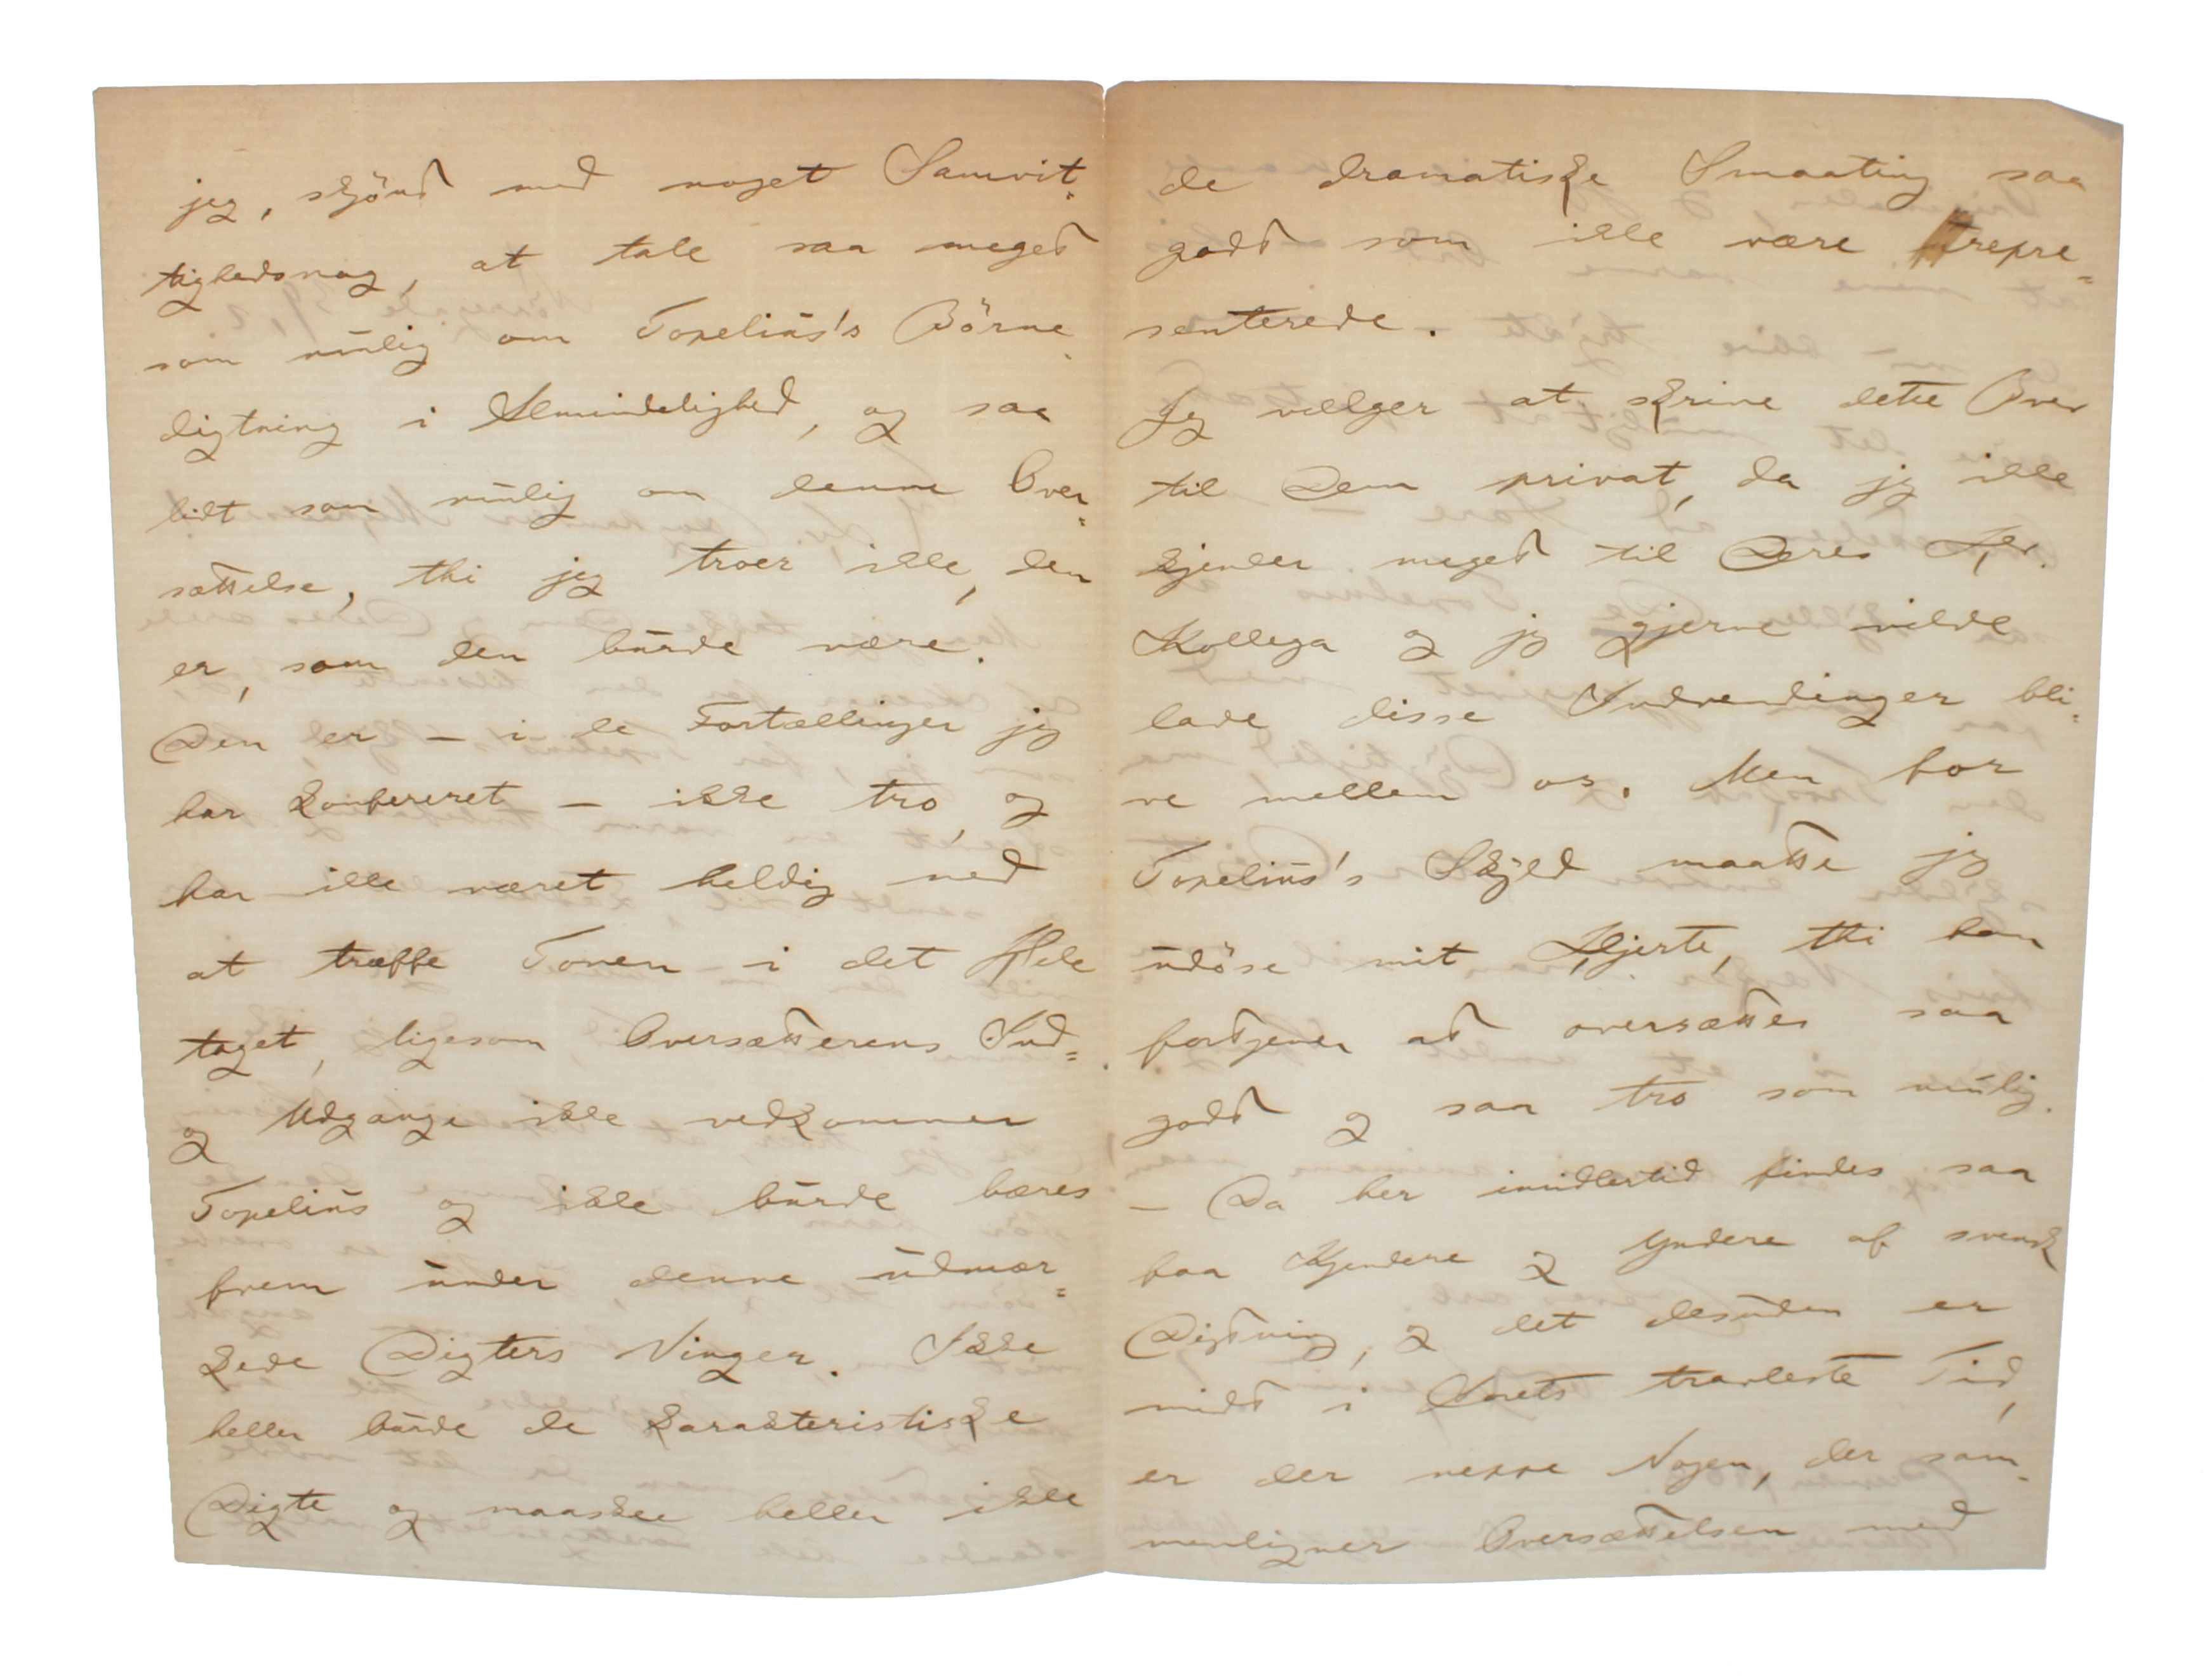 jeg, skjönt med noget Samvit-
tighedsnag, at tale saa meget
som mulig om Topelius's Börne-
digtning i Almindelighed, og saa
lidt som mulig om denne Over-
sættelse, thi jeg troer ikke, den
er, som den burde være.
Den er – i de Fortællinger jeg
har konfereret – ikke tro, og
har ikke været heldig med
at træffe Tonen i det Hele
taget, ligesom Oversætterens Ind-
og Udgange ikke vedkommer
Topelius og ikke burde bæres
frem under denne udmær-
kede Digters Vinger. Ikke
heller burde de karakteristiske
Digte og maaskee heller ikke
de dramatiske Smaating saa
godt som ikke være repræ-
senterede.
Jeg vælger at skrive dette Brev
til Dem privat, da jeg ikke
kjender meget til Deres Hr.
Kollega og jeg gjerne vilde
lade disse Indvendinger bli-
ve mellem os. Men for
Topelius's Skyld maatte jeg
udöse mit Hjerte, thi han
fortjener at oversættes saa
godt og saa tro som mulig.
– Da her imidlertid findes saa
faa Kjendere og Yndere af svensk
Digtning, og det desuden er
midt i Aarets travleste Tid,
er der neppe Nogen, der sam-
menligner Oversættelsen med